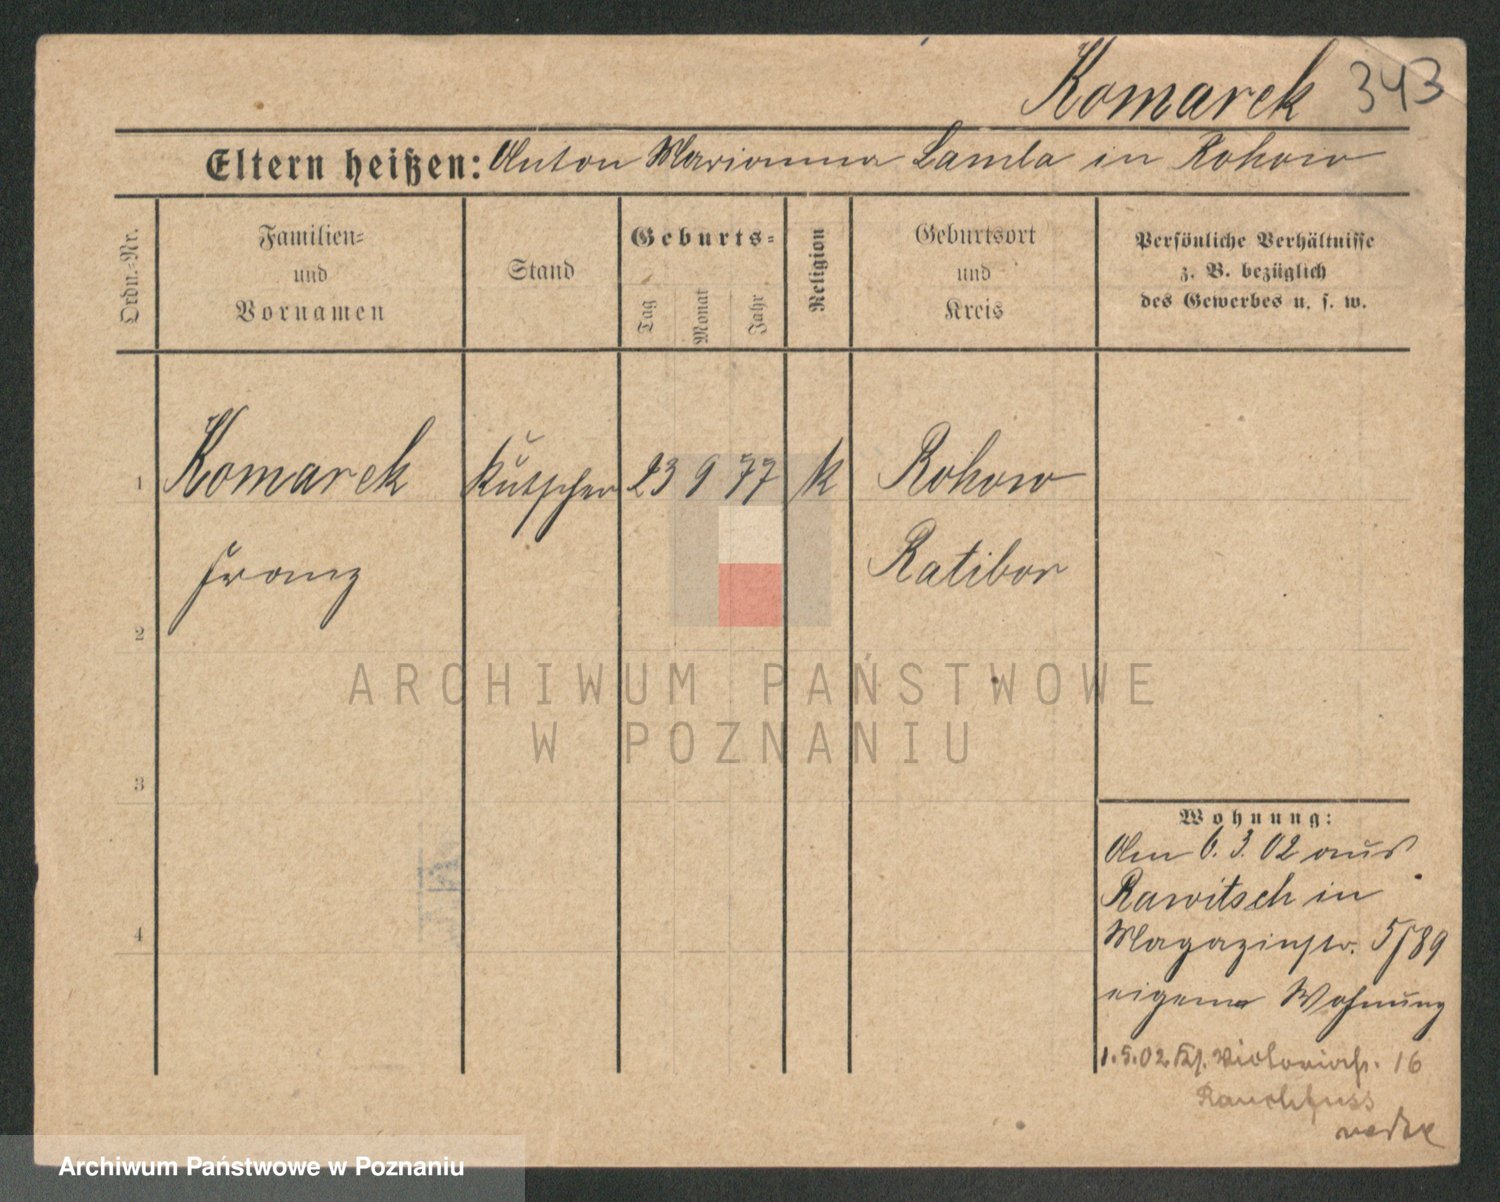 Komarek 343
Eltern heißen: Anton Marianna Lamla in Rohow
Ordn.-Nr.
Familien-
und
Vornamen
Stand
Geburts-
Tag
Monat
Jahr
Religion
Geburtsort
und
Kreis
Persönliche Verhältnisse
z. B. bezüglich
des Gewerbes u. s. w.
1 Komarek Kutscher 23 9 77 k Rohow
Franz Ratibor
2
ARCHIWUM PAŃSTWOWE
W POZNANIU
3
Wohnung:
Am 6.3.02 aus
Rawitsch in
4 Magazinstr. 5/89
eigene Wohnung
1.5.02 Victoriastr. 16
Rauchfuss
Archiwum Państwowe w Poznaniu